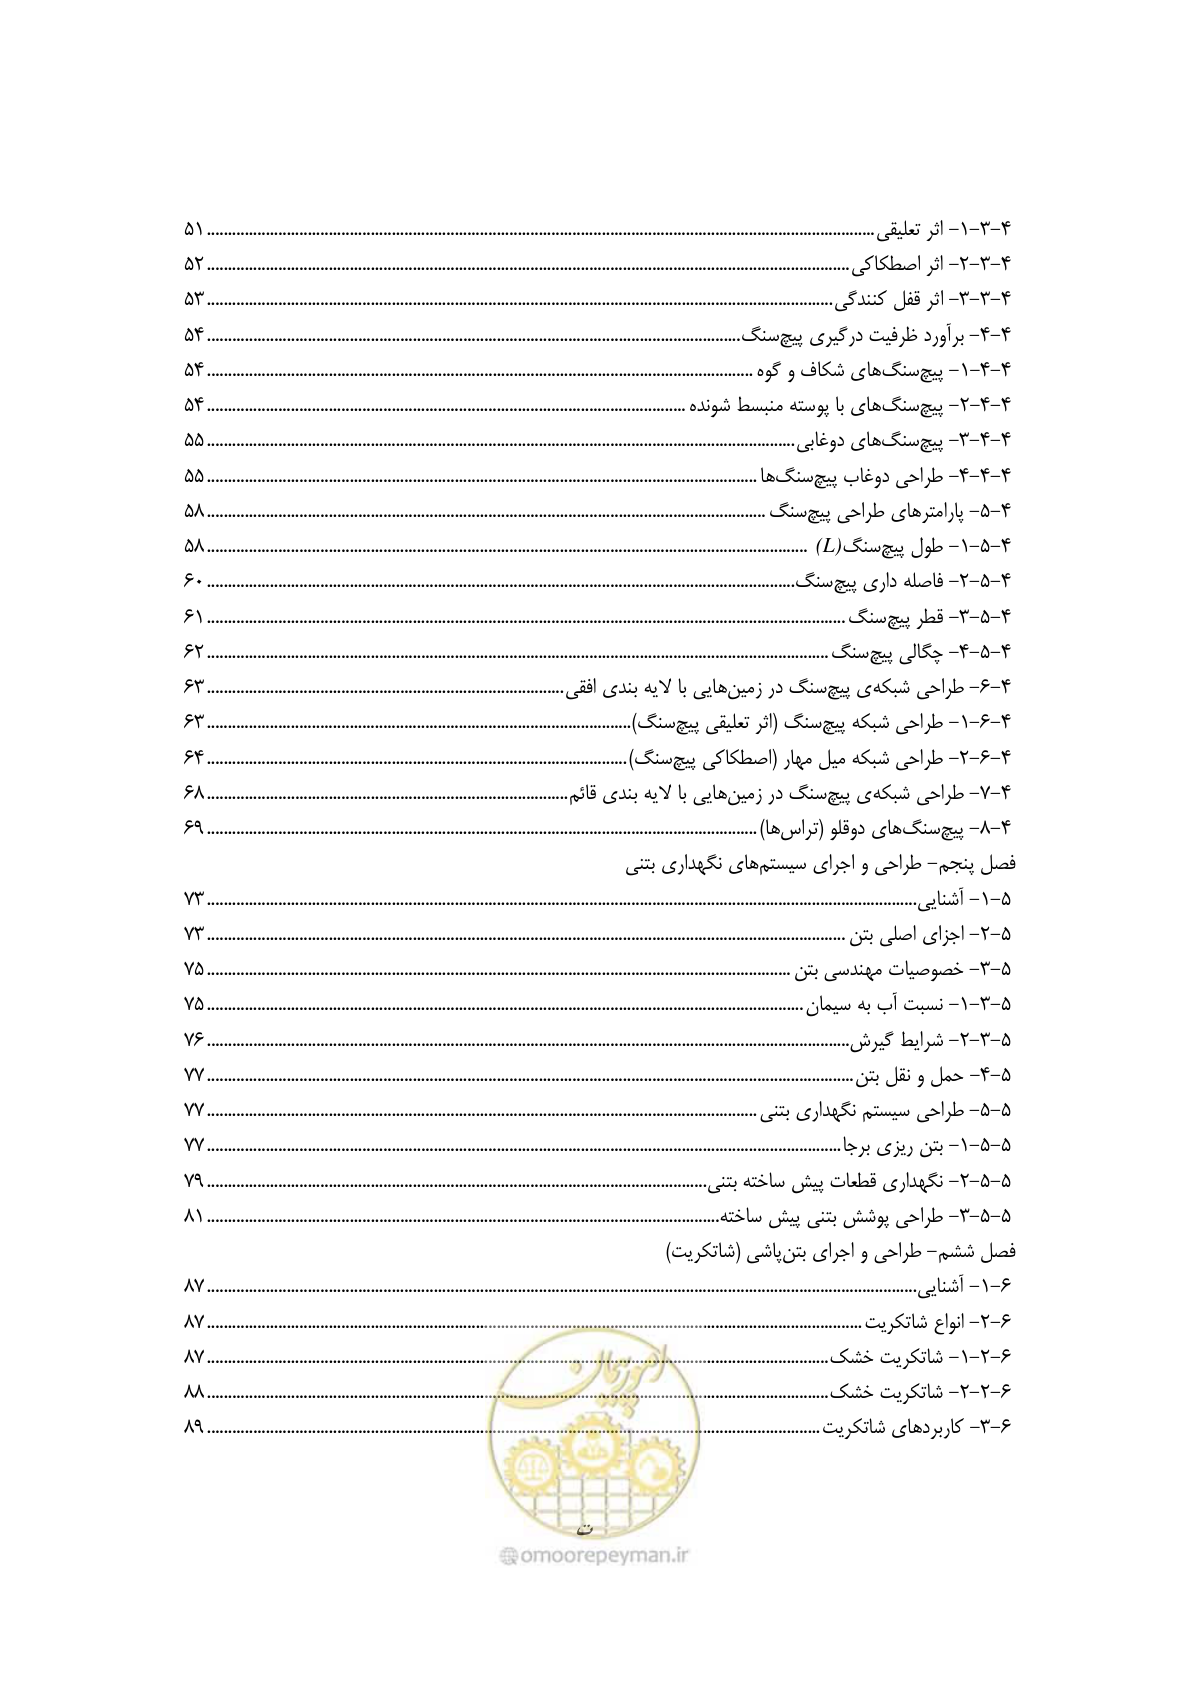 ۴-۳-۱- اثر تعلیقی ۵۱
۴-۳-۲- اثر اصطکاکی ۵۲
۴-۳-۳- اثر قفل کنندگی ۵۳
۴-۴- برآورد ظرفیت درگیری پیچ‌سنگ ۵۴
۴-۴-۱- پیچ‌سنگ‌های شکاف و گوه ۵۴
۴-۴-۲- پیچ‌سنگ‌های با پوسته منبسط شونده ۵۴
۴-۴-۳- پیچ‌سنگ‌های دوغابی ۵۵
۴-۴-۴- طراحی دوغاب پیچ‌سنگ‌ها ۵۵
۴-۵- پارامترهای طراحی پیچ‌سنگ ۵۸
۴-۵-۱- طول پیچ‌سنگ(L) ۵۸
۴-۵-۲- فاصله داری پیچ‌سنگ ۶۰
۴-۵-۳- قطر پیچ‌سنگ ۶۱
۴-۵-۴- چگالی پیچ‌سنگ ۶۲
۴-۶- طراحی شبکه‌ی پیچ‌سنگ در زمین‌هایی با لایه بندی افقی ۶۳
۴-۶-۱- طراحی شبکه پیچ‌سنگ (اثر تعلیقی پیچ‌سنگ) ۶۳
۴-۶-۲- طراحی شبکه میل مهار (اصطکاکی پیچ‌سنگ) ۶۴
۴-۷- طراحی شبکه‌ی پیچ‌سنگ در زمین‌هایی با لایه بندی قائم ۶۸
۴-۸- پیچ‌سنگ‌های دوقلو (تراس‌ها) ۶۹
فصل پنجم- طراحی و اجرای سیستم‌های نگهداری بتنی
۵-۱- آشنایی ۷۳
۵-۲- اجزای اصلی بتن ۷۳
۵-۳- خصوصیات مهندسی بتن ۷۵
۵-۳-۱- نسبت آب به سیمان ۷۵
۵-۳-۲- شرایط گیرش ۷۶
۵-۴- حمل و نقل بتن ۷۷
۵-۵- طراحی سیستم نگهداری بتنی ۷۷
۵-۵-۱- بتن ریزی برجا ۷۷
۵-۵-۲- نگهداری قطعات پیش ساخته بتنی ۷۹
۵-۵-۳- طراحی پوشش بتنی پیش ساخته ۸۱
فصل ششم- طراحی و اجرای بتن‌پاشی (شاتکریت)
۶-۱- آشنایی ۸۷
۶-۲- انواع شاتکریت ۸۷
۶-۲-۱- شاتکریت خشک ۸۷
۶-۲-۲- شاتکریت خشک ۸۸
۶-۳- کاربردهای شاتکریت ۸۹
امور پیمان
ت
omoorepeyman.ir